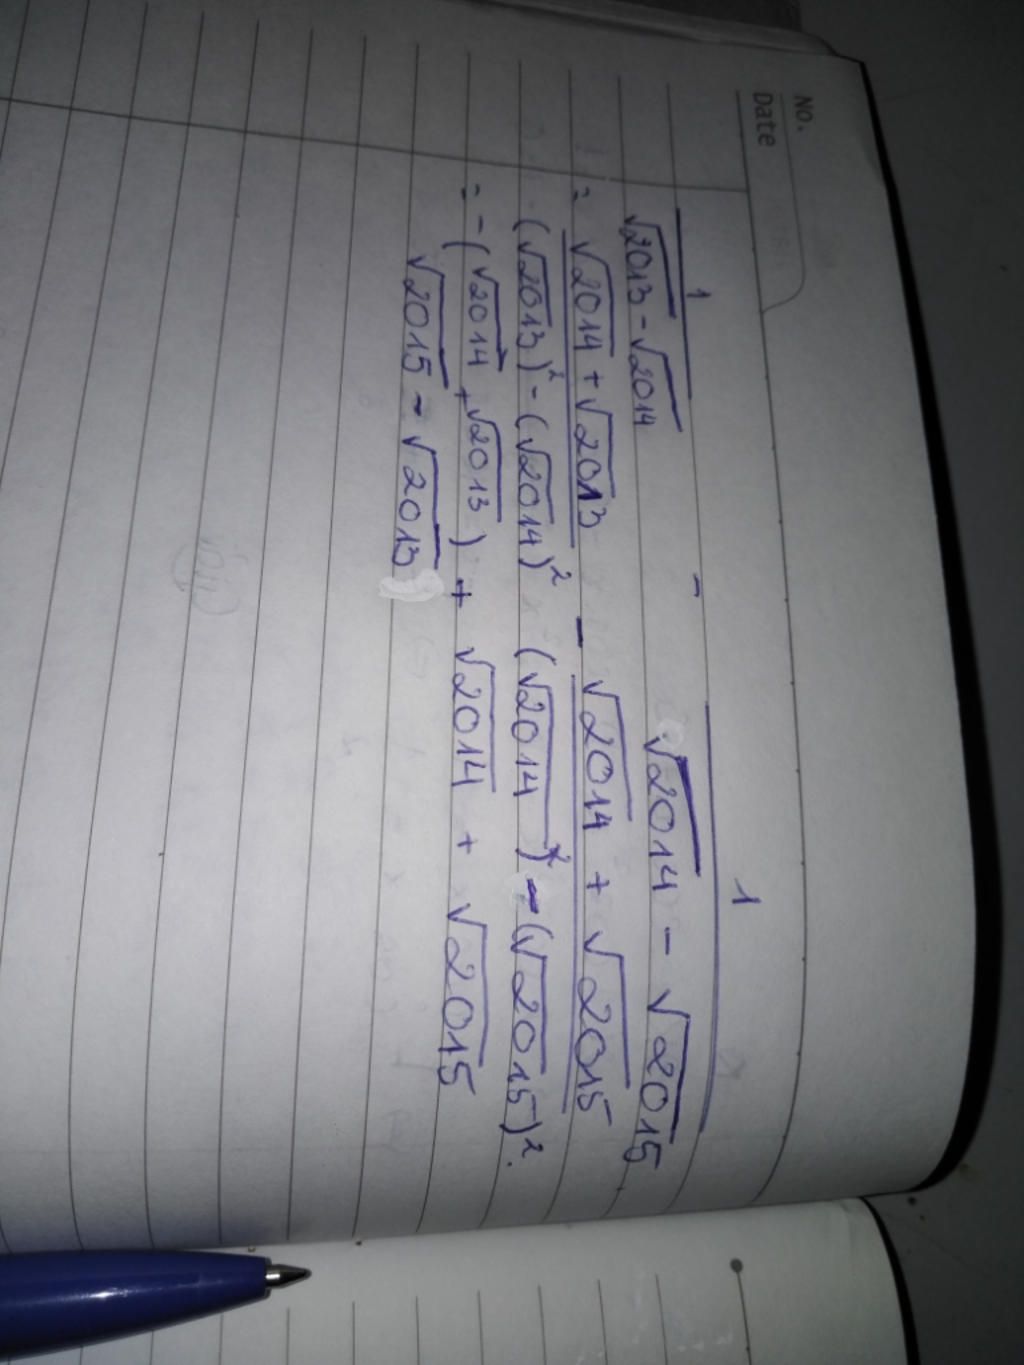 No.
Date
1 - 1
√2013 - √2014 √2014 - √2015
= √2014 + √2013 - √2014 + √2015
(√2013)² - (√2014)² (√2014)² - (√2015)².
= - (√2014 + √2013) + √2014 + √2015
√2015 - √2013